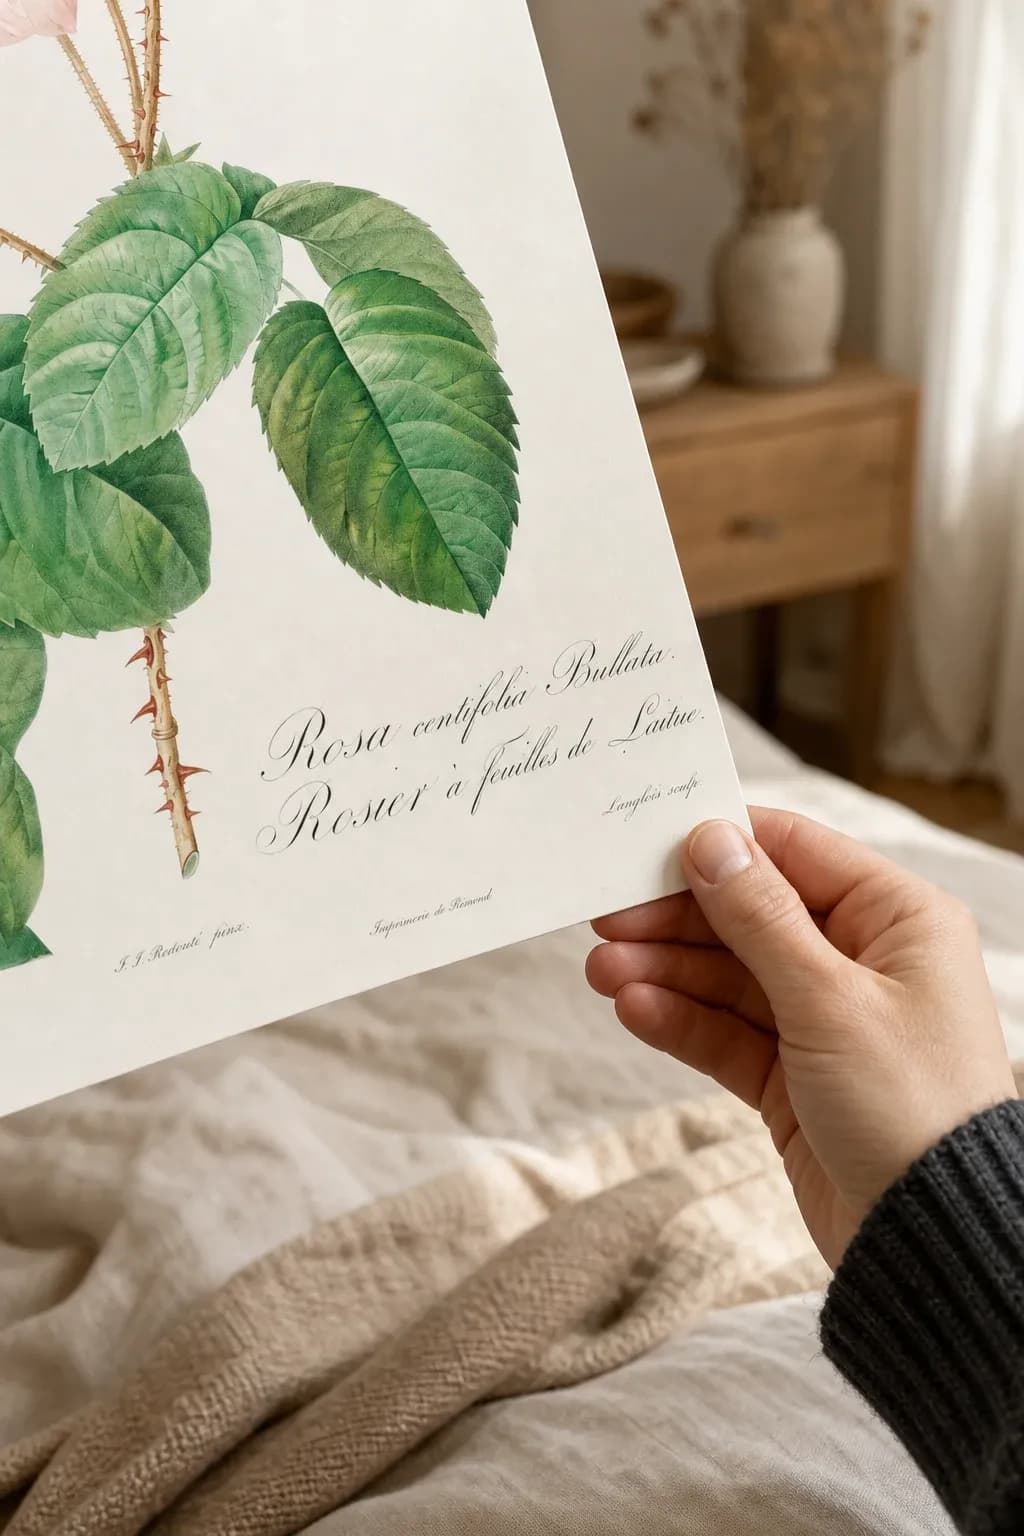 Rosa centifolia Bullata.
Rosier à feuilles de Laitue.
Langlois sculp.
Imprimerie de Rémond
J. J. Redouté pinx.